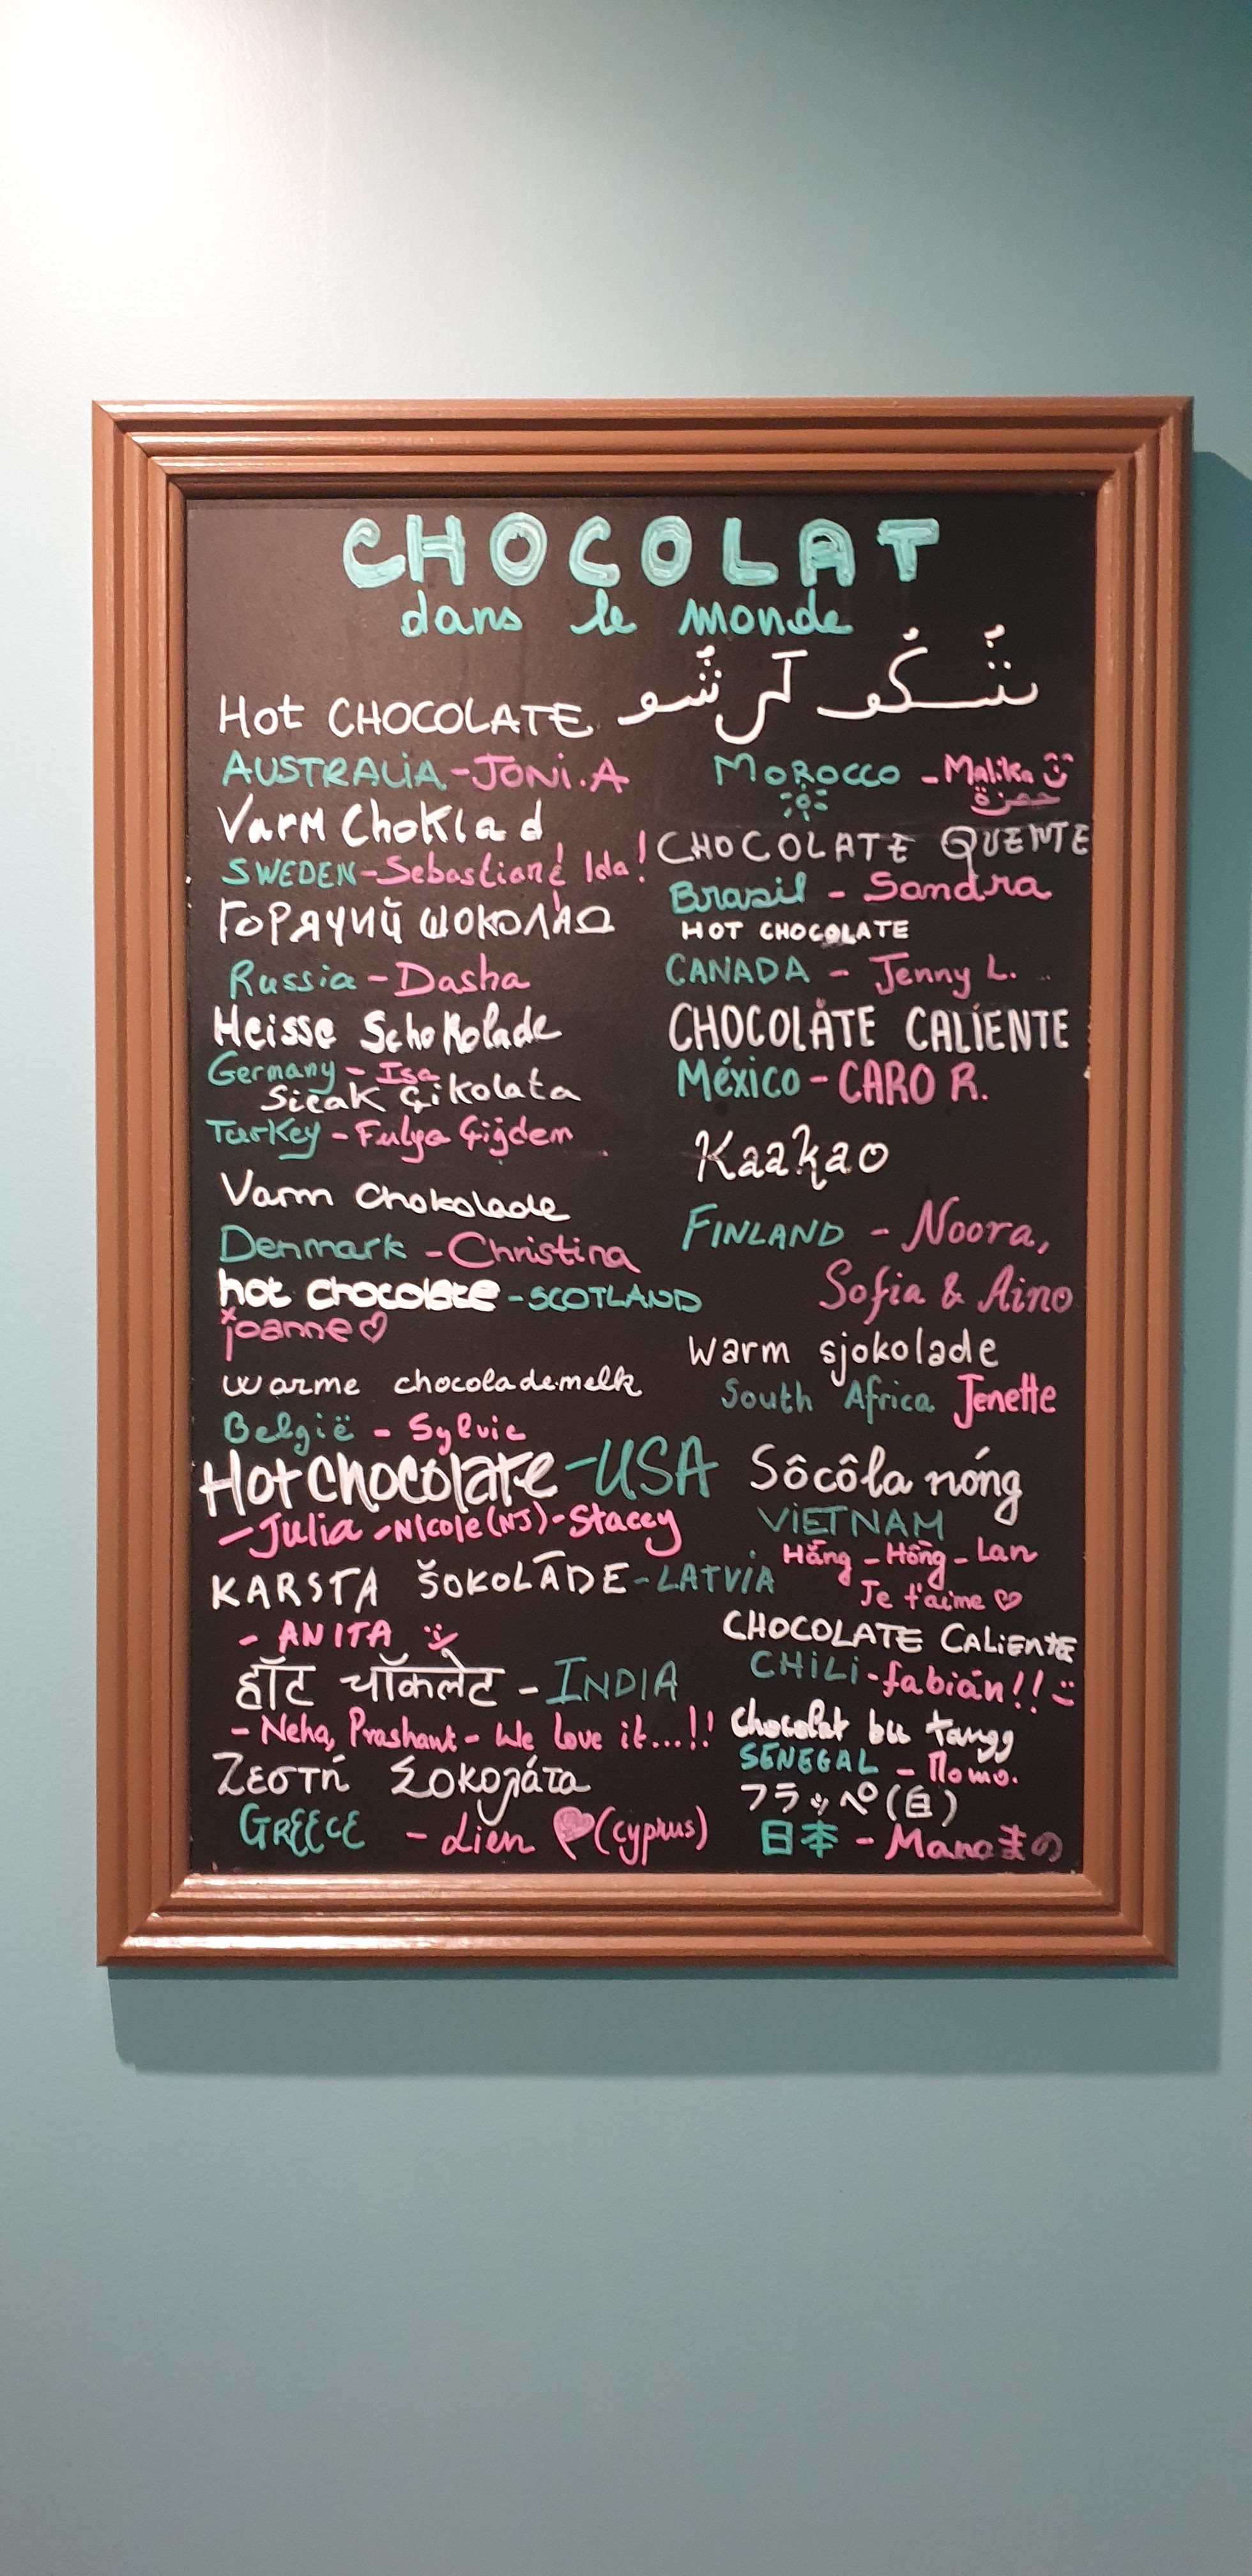 CHOCOLAT
dans le monde
Hot CHOCOLATE
AUSTRALiA - JONi.A
Varm Choklad
SWEDEN - Sebastian & Ida!
ГОРЯЧИЙ ШОКОЛАД
Russia - Dasha
Heisse Schokolade
Germany - Isa
Sicak Çikolata
Turkey - Fulya Çiğdem
Varm Chokolade
Denmark - Christina
hot chocolate - SCOTLAND
joanne ♡
warme chocolademelk
België - Sylvie
Hot chocolate - USA
- Julia - Nicole (NJ) - Stacey
KARSTA ŠOKOLĀDE - LATViA
- ANITA
हॉट चॉकलेट - INDIA
- Neha, Prashant - We love it...!!
Ζεστή Σοκολάτα
GREECE - Lien ♥ (cyprus)
MOROCCO - Malika
حمزة
CHOCOLATE QUENTE
Brasil - Sandra
HOT CHOCOLATE
CANADA - Jenny L.
CHOCOLATE CALIENTE
México - CARO R.
Kaakao
FINLAND - Noora,
Sofia & Aino
Warm sjokolade
South Africa Jenette
Sôcôla nóng
ViETNAM
Hằng - Hồng - Lan
Je t'aime ♡
CHOCOLATE CALiENTE
CHiLi - fabián!!
Chocolat bu tangg
SENEGAL - Momo.
フラッペ(白)
日本 - Mano まの